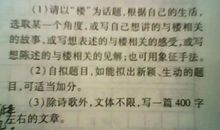 (1)请以“楼”为话题,根据自己的生活,
选取某一个角度,或写自己想讲的与楼相关
的故事,或写想表述的与楼相关的感受,或写
想陈述的与楼相关的见解;也可用象征手法。
(2)自拟题目,如能拟出新颖、生动的题
目,可适当加分。
(3)除诗歌外,文体不限,写一篇400字
左右的文章。